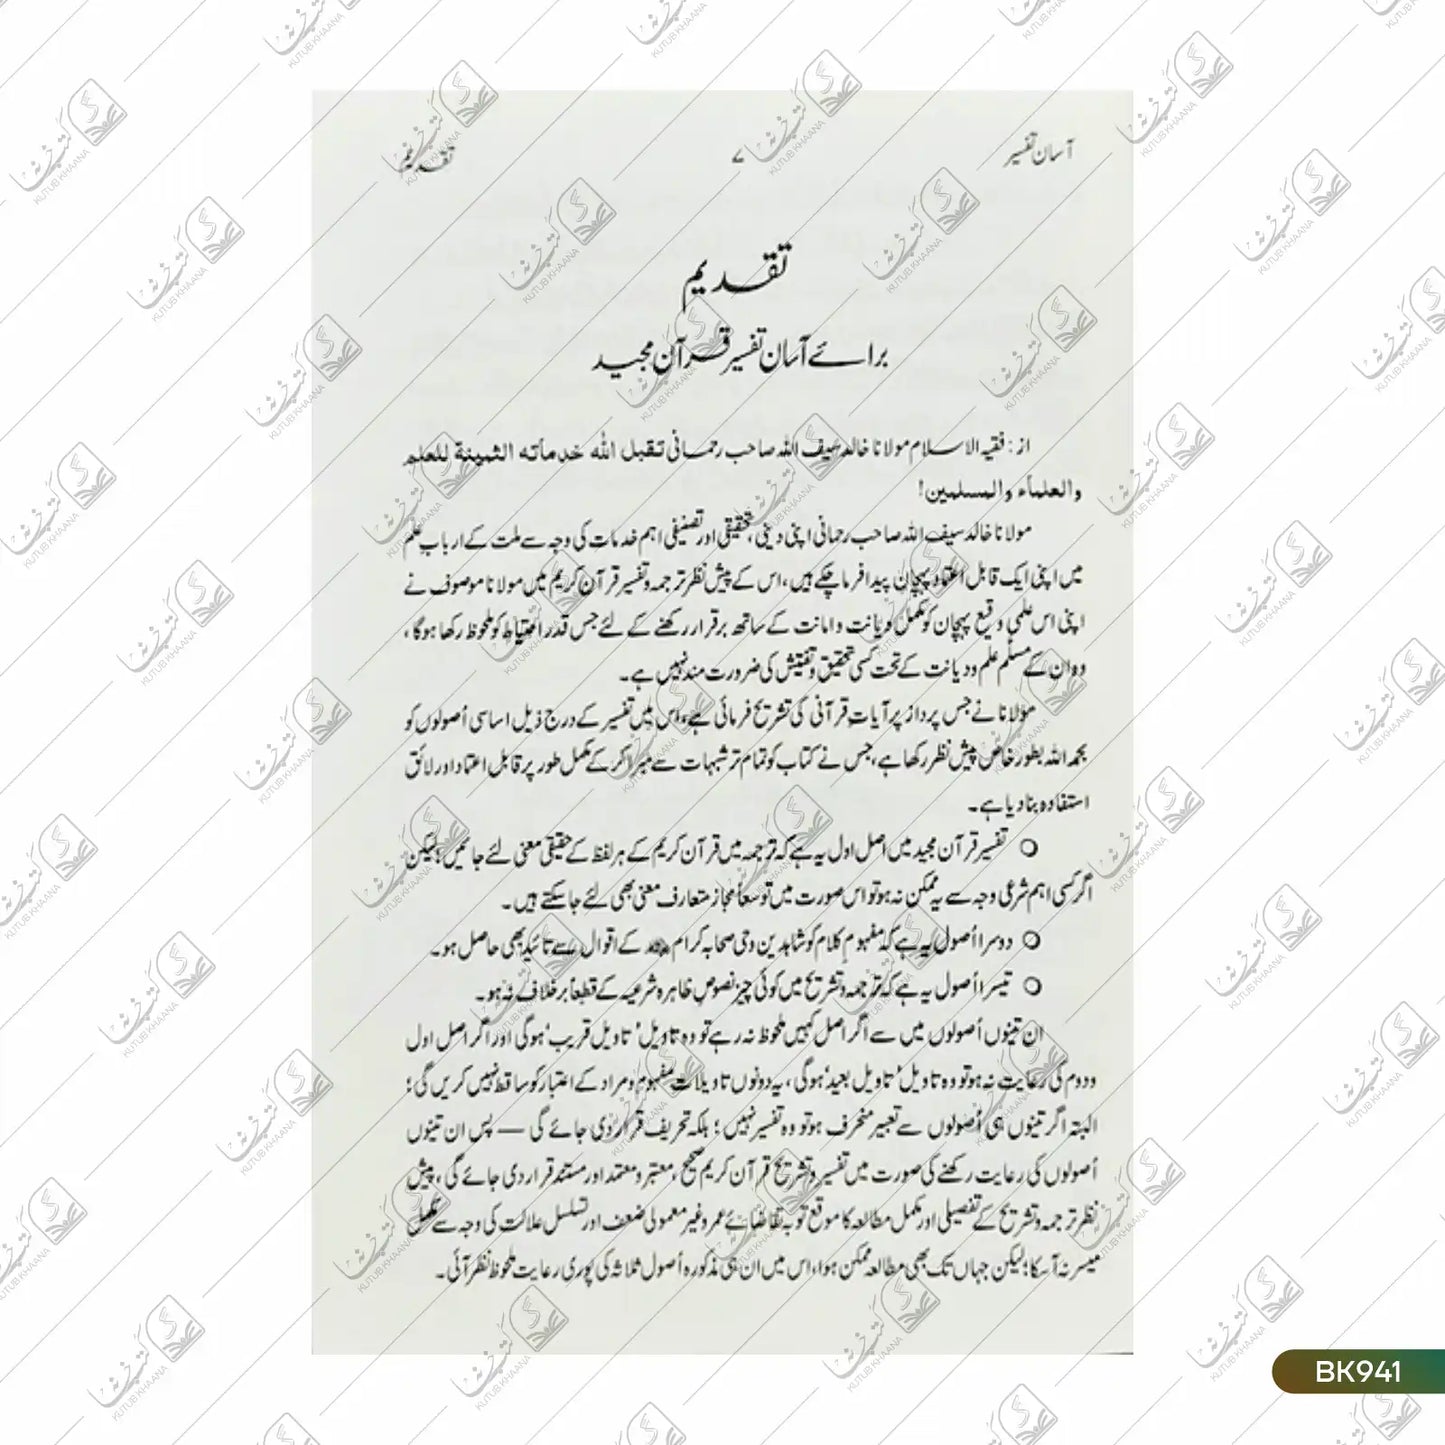 آسان تفسیر ۷ تقدیم
تقدیم
برائے آسان تفسیر قرآن مجید
از: فقیہ الاسلام مولانا خالد سیف اللہ صاحب رحمانی تقبل الله خدماته الثمينة للعلم
والعلماء والمسلمين!
مولانا خالد سیف اللہ صاحب رحمانی اپنی دینی، تحقیقی اور تصنیفی اہم خدمات کی وجہ سے ملت کے ارباب علم
میں اپنی ایک قابل اعتماد پہچان پیدا فرما چکے ہیں، اس کے پیش نظر ترجمہ و تفسیر قرآن کریم میں مولانا موصوف نے
اپنی اس علمی وقیع پہچان کو مکمل دیانت و امانت کے ساتھ برقرار رکھنے کے لئے جس قدر احتیاط کو ملحوظ رکھا ہوگا،
وہ ان کے مسلّم علم و دیانت کے تحت کسی تحقیق و تفتیش کی ضرورت مند نہیں ہے۔
مولانا نے جس پرداز پر آیات قرآنی کی تشریح فرمائی ہے، اس میں تفسیر کے درج ذیل اساسی اُصولوں کو
بحمد اللہ بطور خاص پیش نظر رکھا ہے، جس نے کتاب کو تمام تر شبہات سے مبرا کر کے مکمل طور پر قابل اعتماد اور لائق
استفادہ بنا دیا ہے۔
○ تفسیر قرآن مجید میں اصل اول یہ ہے کہ ترجمہ میں قرآن کریم کے ہر لفظ کے حقیقی معنی لئے جائیں؛ لیکن
اگر کسی اہم شرعی وجہ سے یہ ممکن نہ ہو تو اس صورت میں توسعاً مجاز متعارف معنی بھی لئے جا سکتے ہیں۔
○ دوسرا اُصول یہ ہے کہ مفہوم کلام کو شاہدین وحی صحابہ کرام کے اقوال سے تائید بھی حاصل ہو۔
○ تیسرا اُصول یہ ہے کہ ترجمہ و تشریح میں کوئی چیز نصوص ظاہرہ شرعیہ کے قطعاً برخلاف نہ ہو۔
ان تینوں اُصولوں میں سے اگر اصل کہیں ملحوظ نہ رہے تو وہ تاویل 'تاویل قریب' ہوگی اور اگر اصل اول
و دوم کی رعایت نہ ہو تو وہ تاویل 'تاویل بعید' ہوگی، یہ دونوں تاویلات مفہوم و مراد کے اعتبار کو ساقط نہیں کریں گی؛
البتہ اگر تینوں ہی اُصولوں سے تعبیر منحرف ہو تو وہ تفسیر نہیں؛ بلکہ تحریف قرار دی جائے گی — پس ان تینوں
اُصولوں کی رعایت رکھنے کی صورت میں تفسیر و تشریح قرآن کریم صحیح، معتبر و معتمد اور مستند قرار دی جائے گی، پیش
نظر ترجمہ و تشریح کے تفصیلی اور مکمل مطالعہ کا موقع تو بہ تقاضائے عمر و غیر معمولی ضعف اور تسلسل علالت کی وجہ سے مکمل
میسر نہ آسکا؛ لیکن جہاں تک بھی مطالعہ ممکن ہوا، اس میں ان ہی مذکورہ اُصول ثلاثہ کی پوری رعایت ملحوظ نظر آئی۔
کتب خانہ
KUTUB KHAANA
BK941